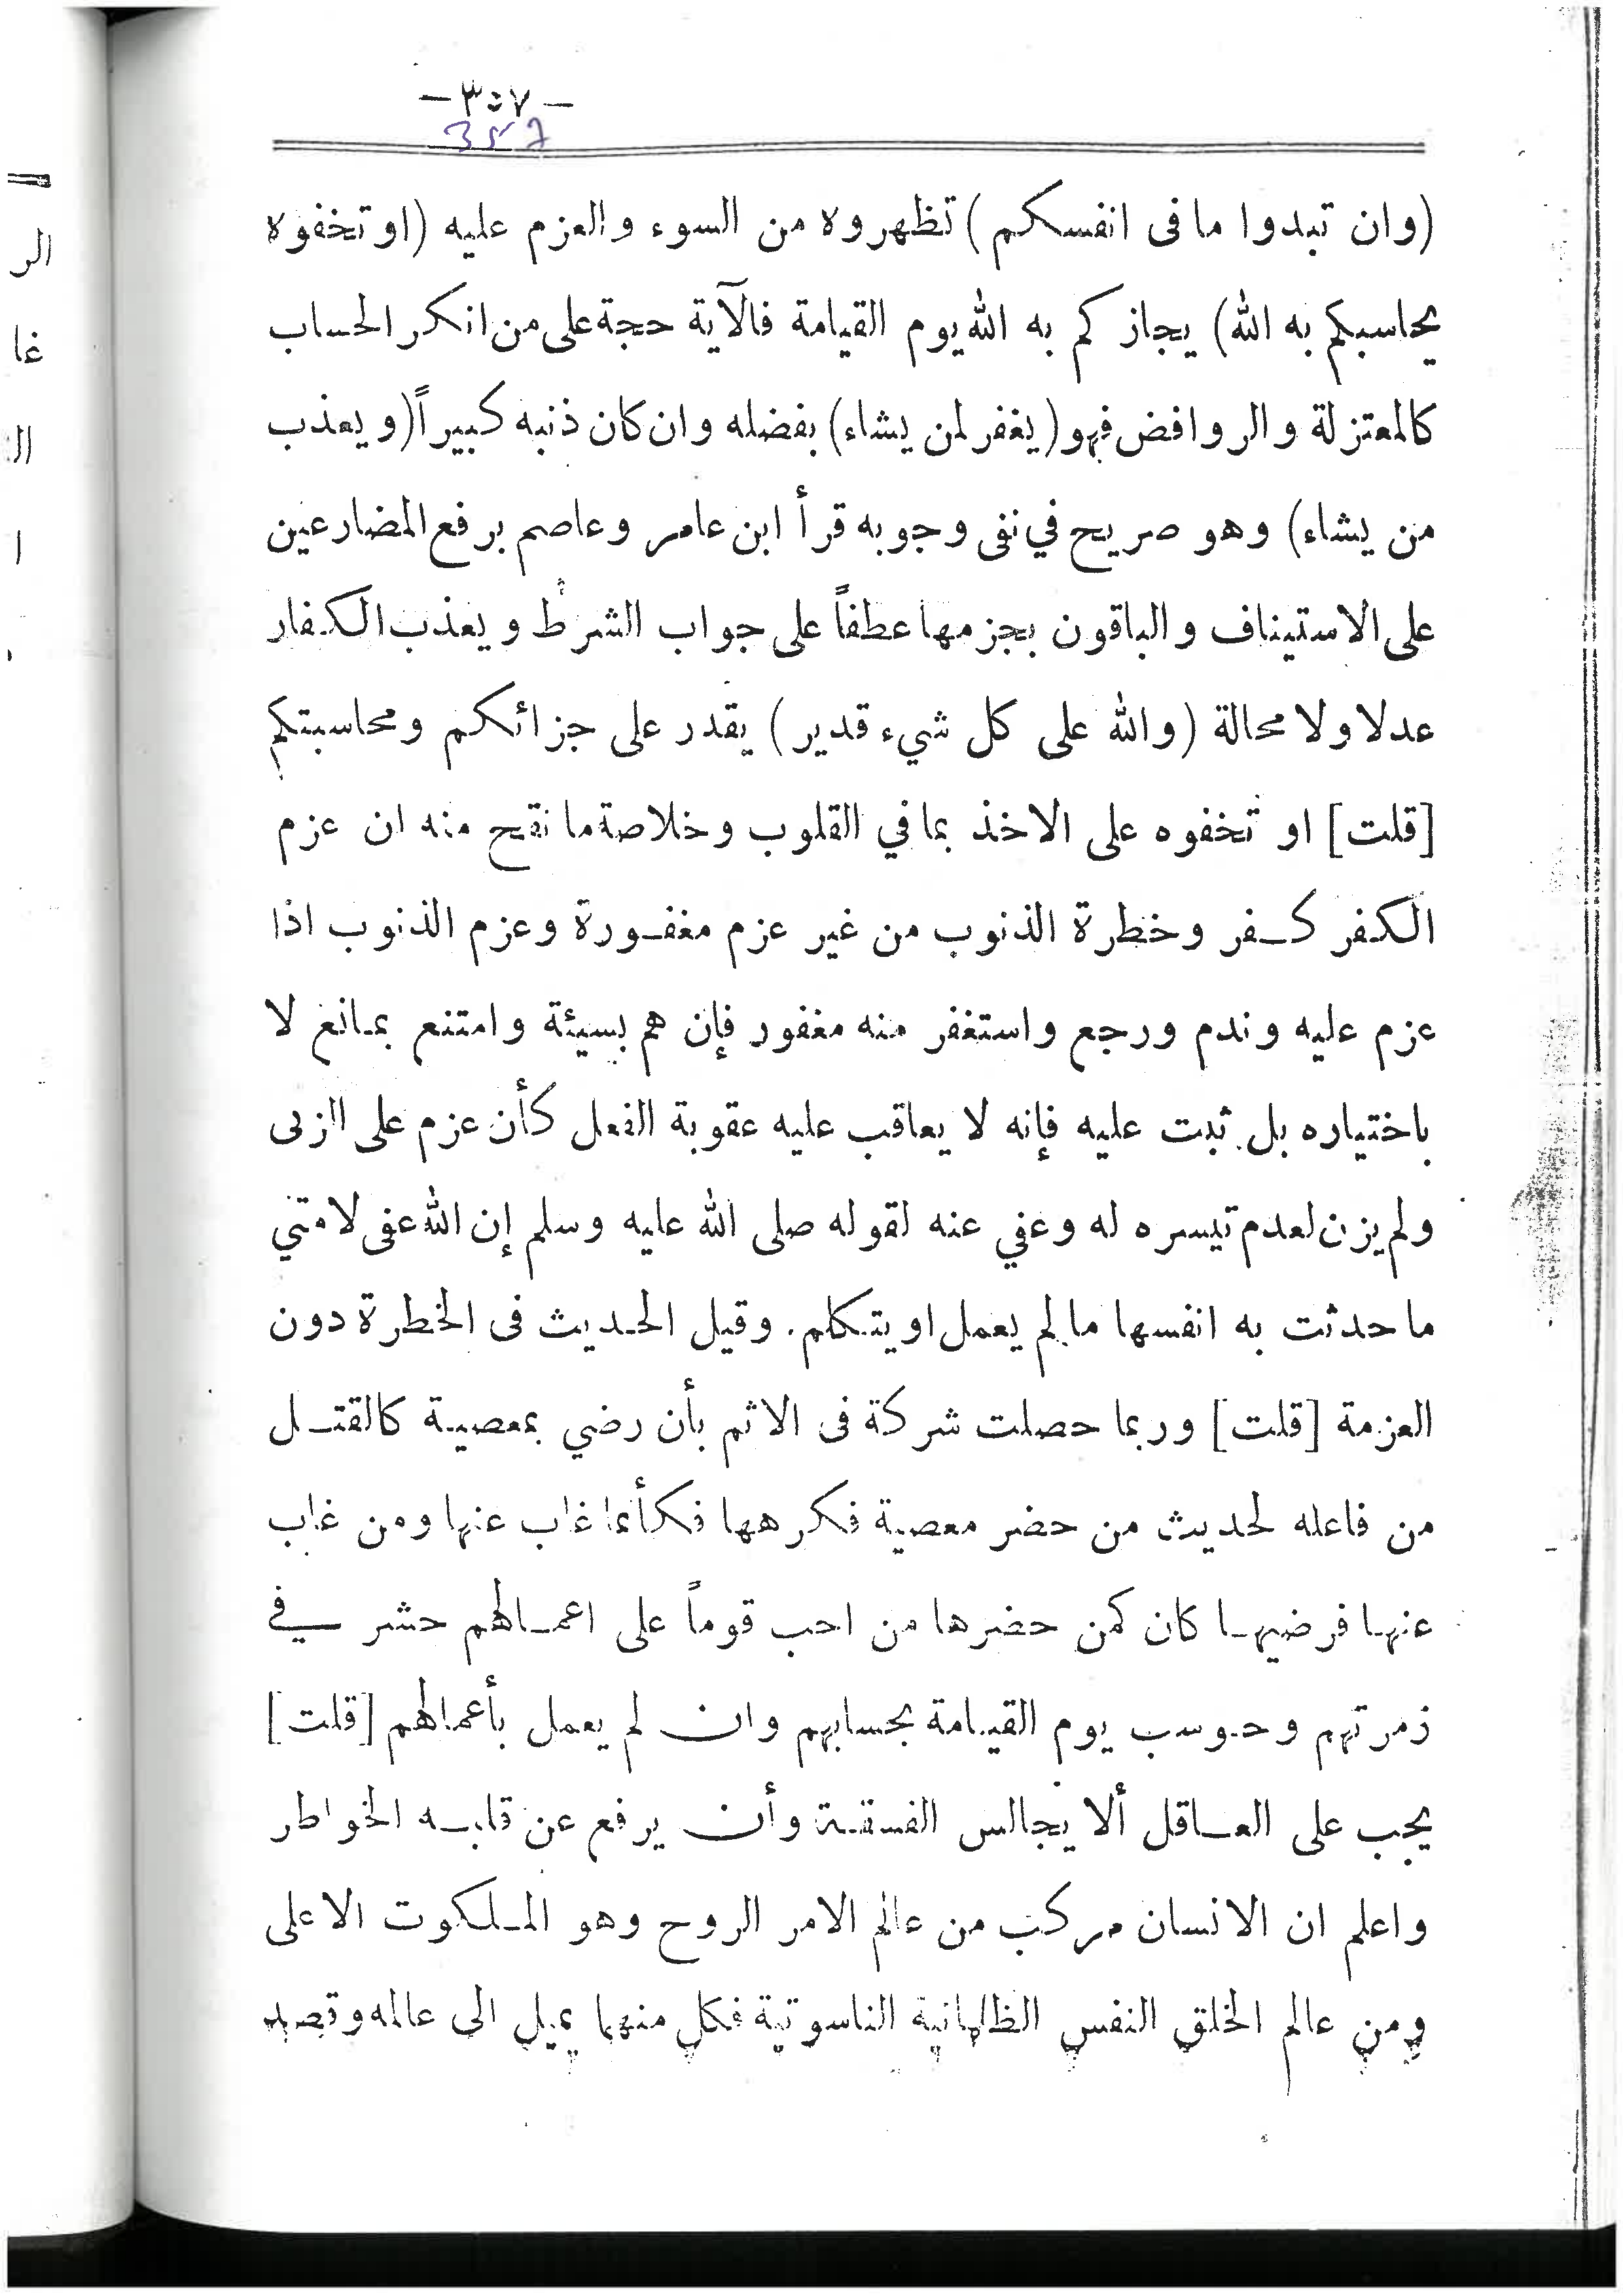 -٣٥٧-
357
(وان تبدوا ما فى انفسكم) تظهروه من السوء والعزم عليه (او تخفوه
يحاسبكم به الله) يجازكم به الله يوم القيامة فالآية حجة على من انكر الحساب
كالمعتزلة والروافض فهو (يغفر لمن يشاء) بفضله وان كان ذنبه كبيراً (ويعذب
من يشاء) وهو صريح في نفى وجوبه قرأ ابن عامر وعاصم برفع المضارعين
على الاستيناف والباقون بجزمها عطفاً على جواب الشرط ويعذب الكفار
عدلا ولا محالة (والله على كل شيء قدير) يقدر على جزائكم ومحاسبتكم
[قلت] او تخفوه على الاخذ بما في القلوب وخلاصة ما نقح منه ان عزم
الكفر كفر وخطرة الذنوب من غير عزم مغفورة وعزم الذنوب اذا
عزم عليه وندم ورجع واستغفر منه مغفور فإن هم بسيئة وامتنع بمانع لا
باختياره بل ثبت عليه فإنه لا يعاقب عليه عقوبة الفعل كأن عزم على الزنى
ولم يزن لعدم تيسره له وعفي عنه لقوله صلى الله عليه وسلم إن الله عفى لامتي
ما حدثت به انفسها ما لم يعمل او يتكلم. وقيل الحديث فى الخطرة دون
العزمة [قلت] وربما حصلت شركة فى الاثم بأن رضي بمعصية كالقتل
من فاعله لحديث من حضر معصية فكرهها فكأنما غاب عنها ومن غاب
عنها فرضيها كان كمن حضرها من احب قوماً على اعمالهم حشر في
زمرتهم وحوسب يوم القيامة بحسابهم وان لم يعمل بأعمالهم [قلت]
يجب على العاقل ألا يجالس الفسقة وأن يرفع عن قلبه الخواطر
واعلم ان الانسان مركب من عالم الامر الروح وهو الملكوت الاعلى
ومن عالم الخلق النفس الظلمانية الناسوتية فكل منهما يميل الى عالمه وقصد
الر
غا
ا